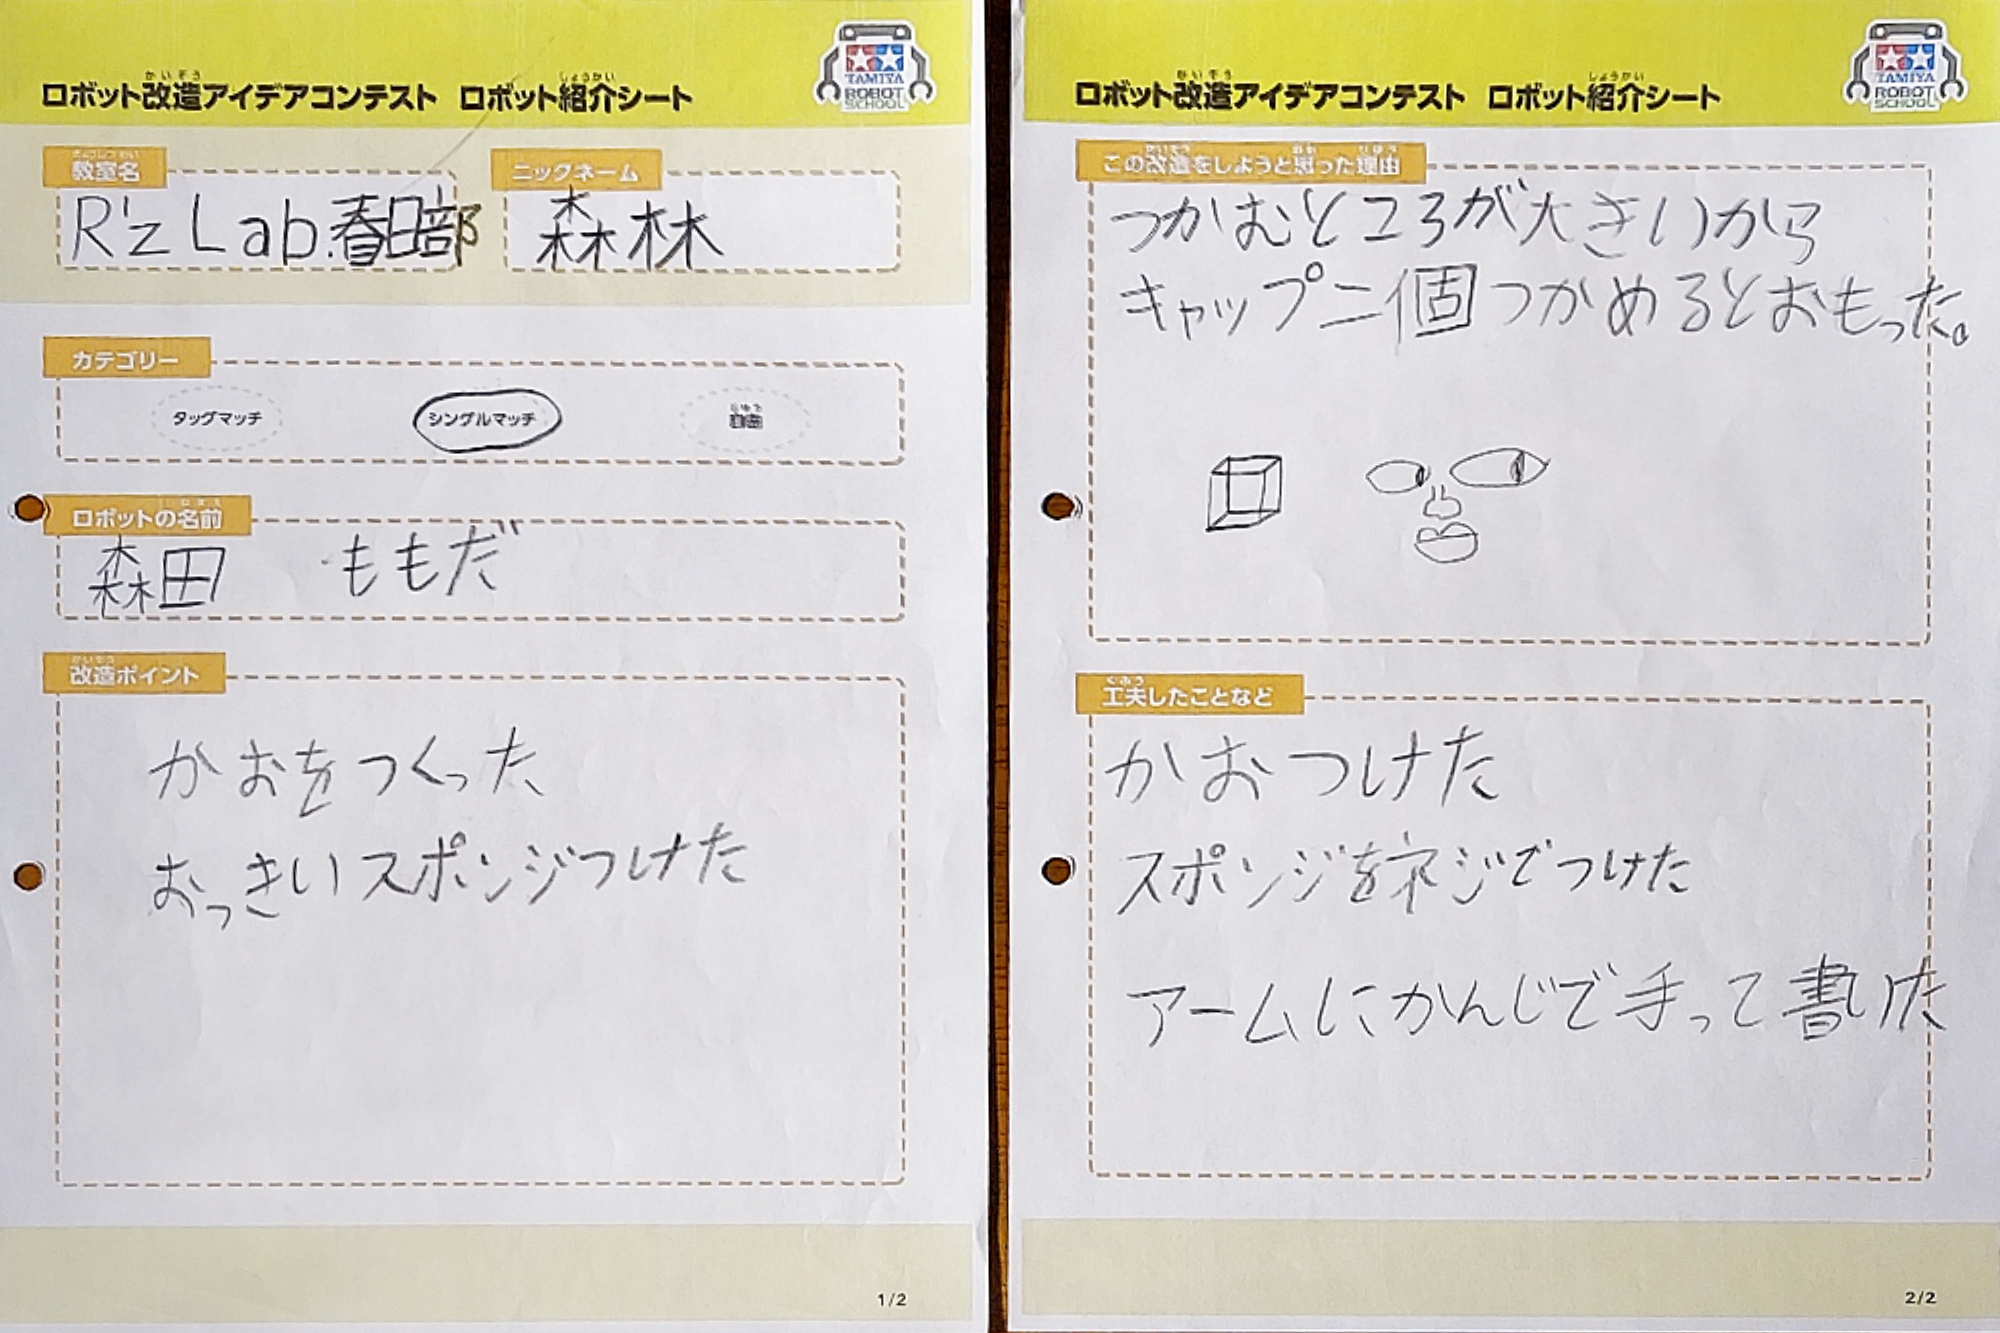 ロボット改造アイデアコンテスト ロボット紹介シート
かいぞう
しょうかい
TAMIYA
ROBOT
SCHOOL
教室名
きょうしつめい
R'z Lab.春日部
ニックネーム
森林
カテゴリー
タッグマッチ
シングルマッチ
自由
じゆう
ロボットの名前
なまえ
森田 ももだ
改造ポイント
かいぞう
かおをつくった
おっきいスポンジつけた
1/2
ロボット改造アイデアコンテスト ロボット紹介シート
かいぞう
しょうかい
TAMIYA
ROBOT
SCHOOL
この改造をしようと思った理由
かいぞう
おも
りゆう
つかむところが大きいから
キャップ二個つかめるとおもった。
工夫したことなど
くふう
かおつけた
スポンジをネジでつけた
アームにかんじで手って書いた
2/2